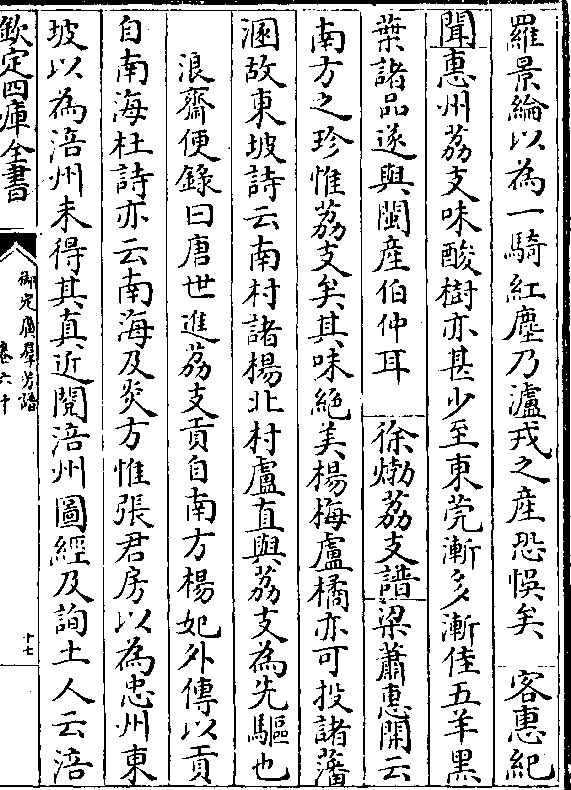 羅景綸以為一騎紅塵乃瀘戎之産恐悞矣　客惠紀
聞惠州荔支味酸樹亦甚少至東莞漸多漸佳五羊黑
葉諸品遂與閩産伯仲耳　徐㶿荔支譜梁蕭惠開云
南方之珍惟荔支矣其味絶美楊梅盧橘亦可投諸藩
溷故東坡詩云南村諸楊北村盧直與荔支為先驅也
浪齋便錄曰唐世進荔支貢自南方楊妃外傳以貢
自南海杜詩亦云南海及炎方惟張君房以為忠州東
坡以為涪州未得其真近閱涪州圖經及詢土人云涪
欽定四庫全書
御定廣羣芳譜
卷六十
十七